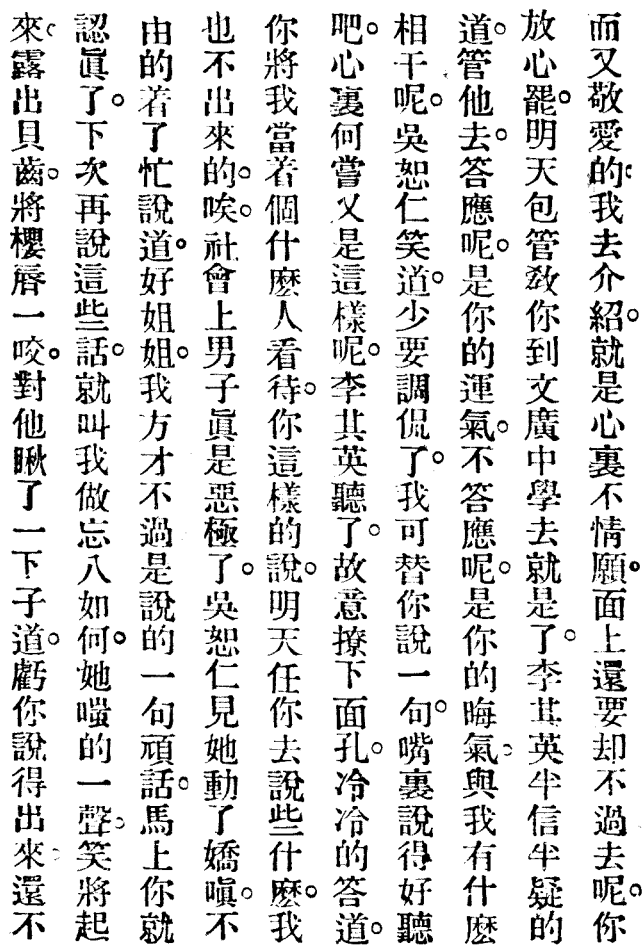 而又敬愛的。我去介紹。就是心裏不情願。面上還要却不過去呢。你
放心罷。明天包管敎你到文廣中學去就是了。李其英半信半疑的
道。管他去。答應呢。是你的運氣。不答應呢。是你的晦氣。與我有什麽
相干呢。吳恕仁笑道。少要調侃了。我可替你說一句。嘴裏說得好聽
吧。心裏何嘗又是這樣呢。李其英聽了。故意撩下面孔。冷冷的答道。
你將我當着個什麽人看待。你這樣的說。明天任你去說些什麽。我
也不出來的。唉。社會上男子眞是惡極了。吳恕仁見她動了嬌嗔。不
由的着了忙說道。好姐姐。我方才不過是說的一句頑話。馬上你就
認眞了。下次再說這些話。就叫我做忘八如何。她嗤的一聲。笑將起
來。露出貝齒。將櫻唇一咬。對他瞅了一下子道。虧你說得出來。還不